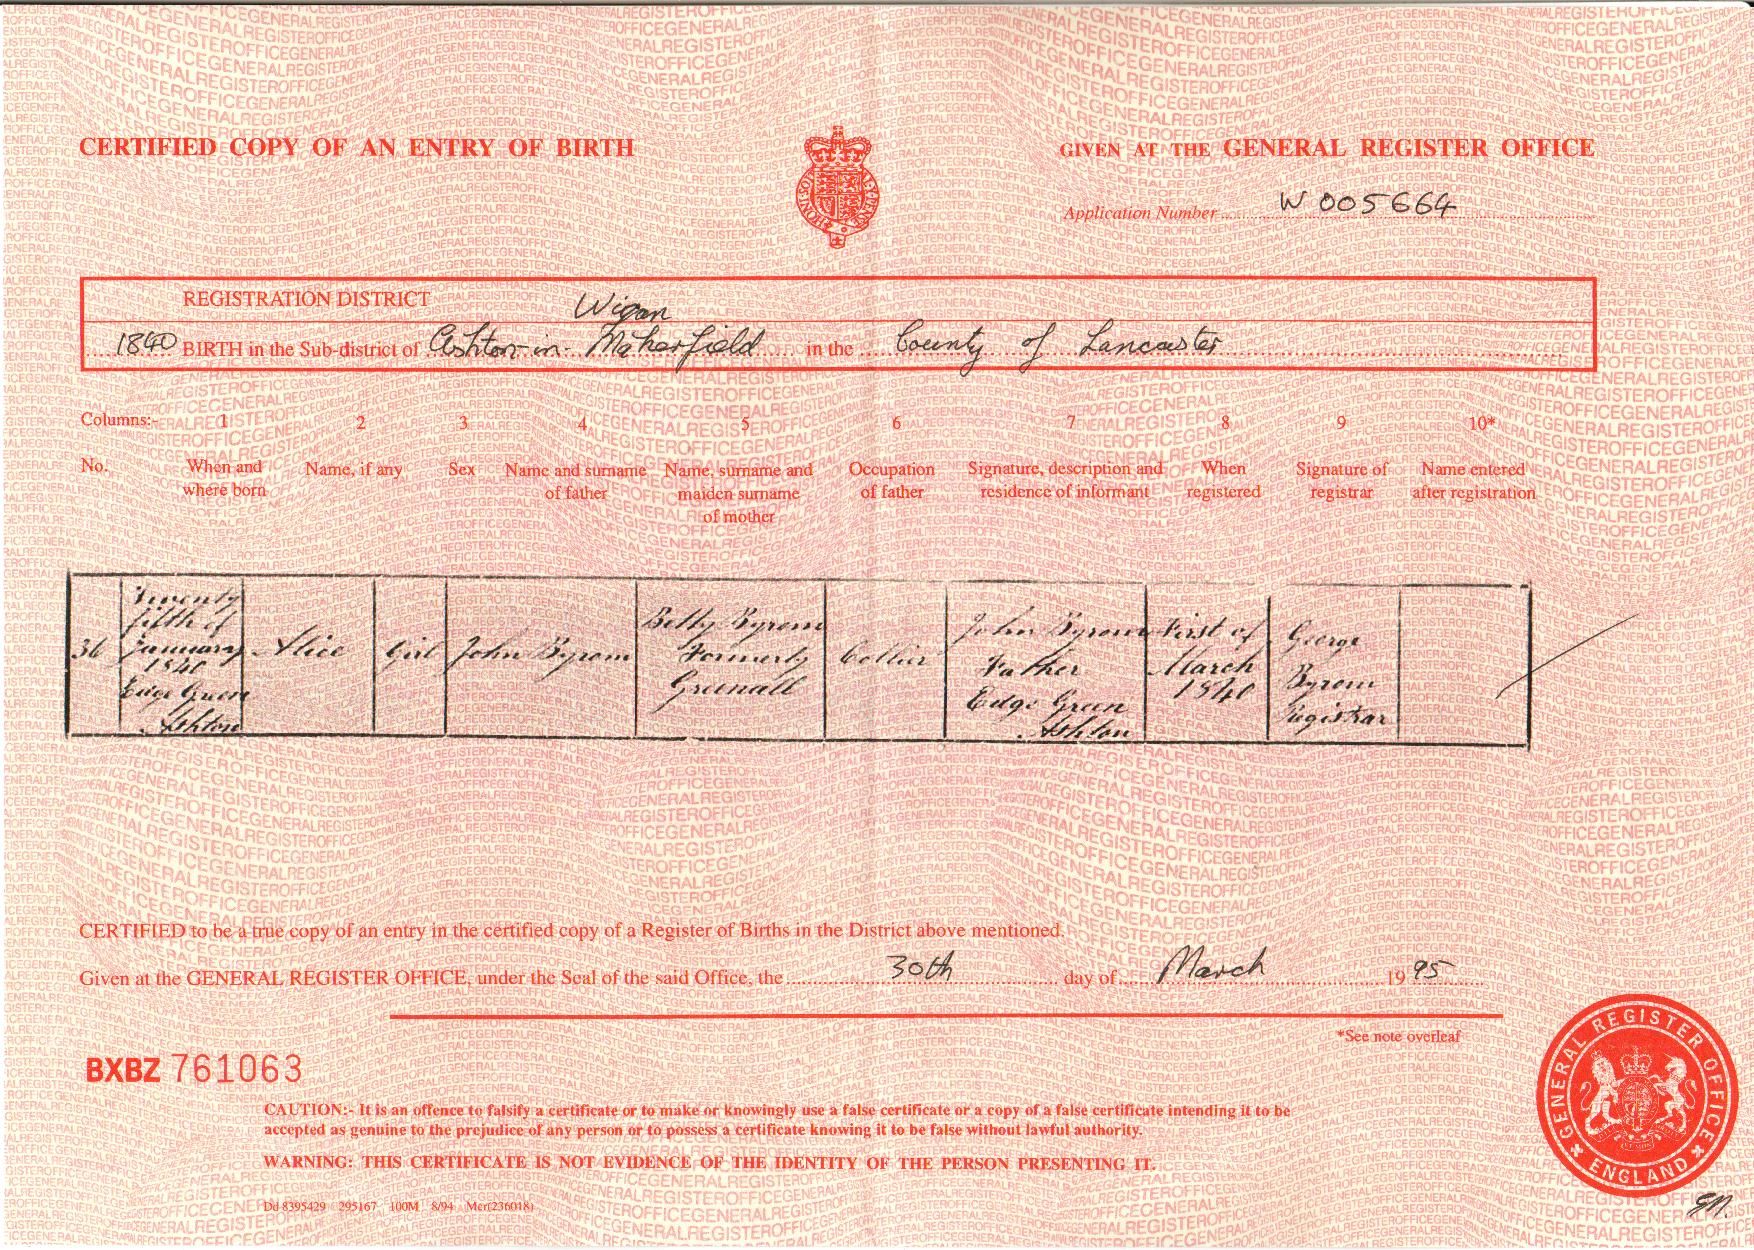 CERTIFIED COPY OF AN ENTRY OF BIRTH
GIVEN AT THE GENERAL REGISTER OFFICE
Application Number W 005664
REGISTRATION DISTRICT Wigan
1840 BIRTH in the Sub-district of Ashton-in-Makerfield in the County of Lancaster
Columns:- 1 2 3 4 5 6 7 8 9 10*
No.
When and
where born
Name, if any
Sex
Name and surname
of father
Name, surname and
maiden surname
of mother
Occupation
of father
Signature, description and
residence of informant
When
registered
Signature of
registrar
Name entered
after registration
36
Twenty
fifth of
January
1840
Edge Green
Ashton
Alice
Girl
John Byrom
Betty Byrom
Formerly
Greenall
Collier
John Byrom
Father
Edge Green
Ashton
First of
March
1840
George
Byrom
Registrar
CERTIFIED to be a true copy of an entry in the certified copy of a Register of Births in the District above mentioned.
Given at the GENERAL REGISTER OFFICE, under the Seal of the said Office, the 30th day of March 1995
*See note overleaf
BXBZ 761063
CAUTION:- It is an offence to falsify a certificate or to make or knowingly use a false certificate or a copy of a false certificate intending it to be
accepted as genuine to the prejudice of any person or to possess a certificate knowing it to be false without lawful authority.
WARNING: THIS CERTIFICATE IS NOT EVIDENCE OF THE IDENTITY OF THE PERSON PRESENTING IT.
Dd 8395429 295167 100M 8/94 Mcr(236018)
GENERAL REGISTER OFFICE
ENGLAND